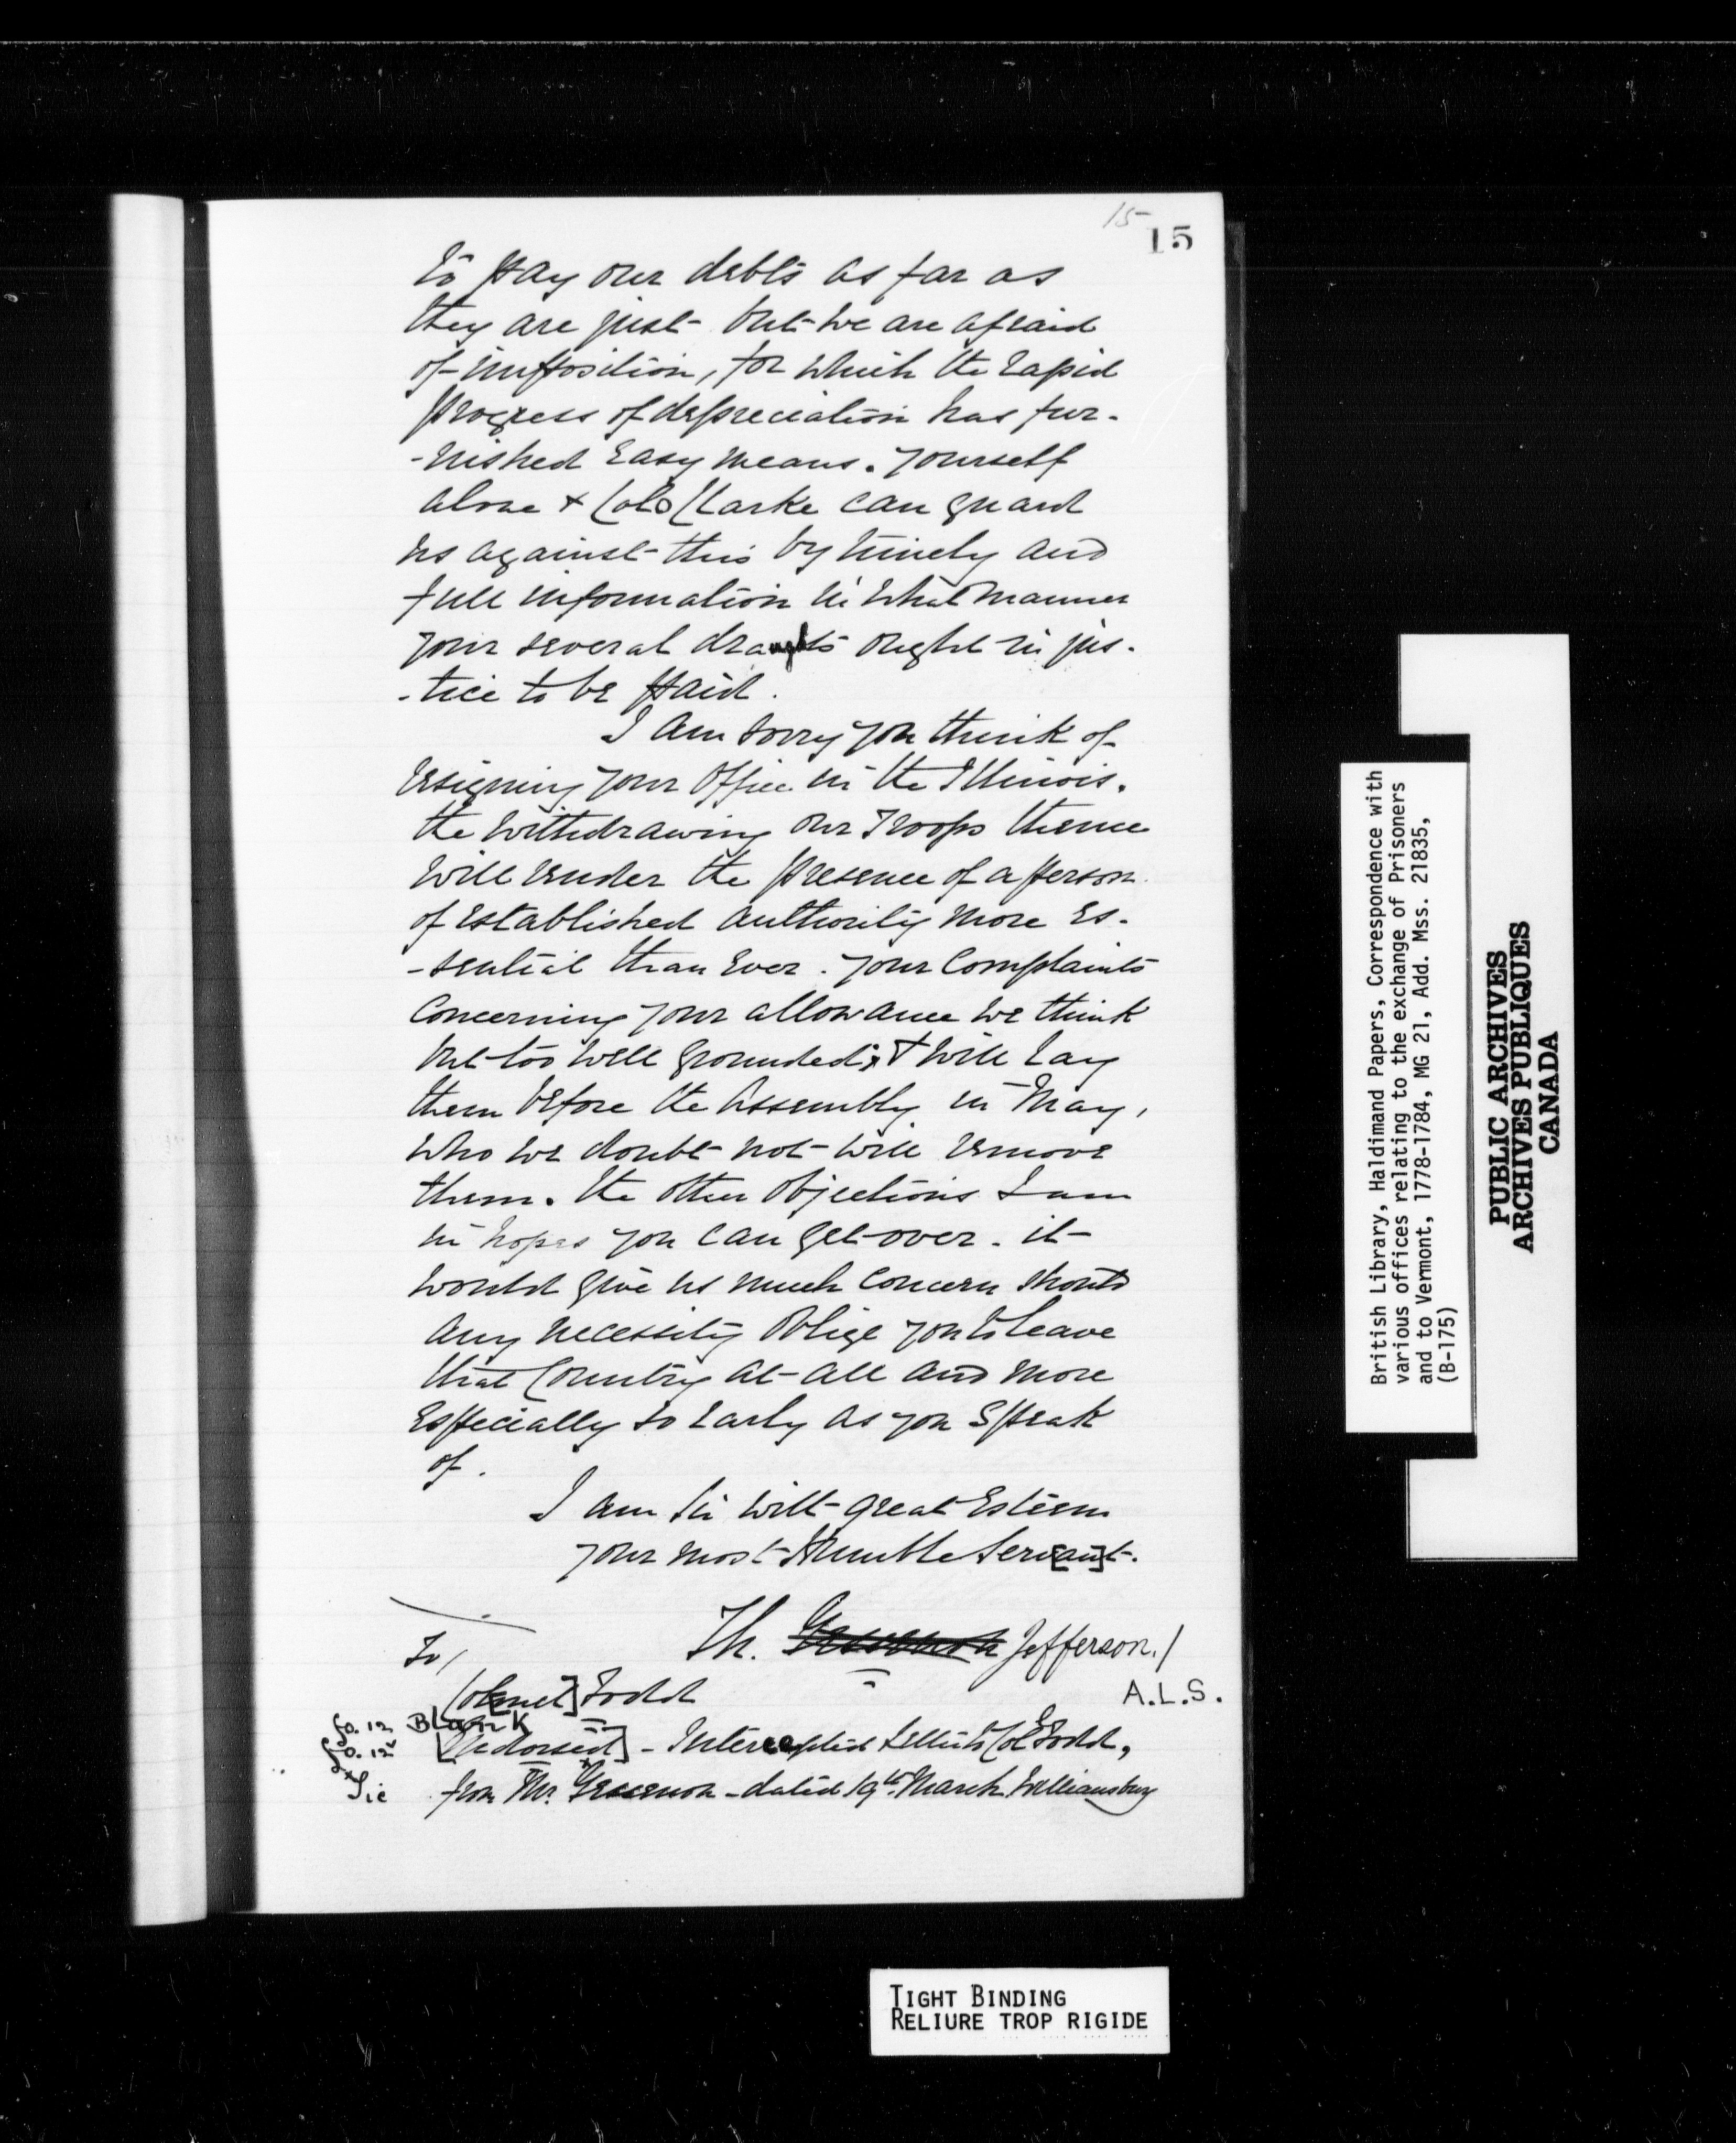 15
15
to pay our debts as far as
they are just but we are afraid
of imposition, for which the rapid
progress of depreciation has fur-
-nished easy means. yourself
alone & Colo Clarke can guard
us against this by timely and
full information in what manner
your several draughts ought in jus-
-tice to be paid.
I am sorry you think of
resigning your office in the Illinois.
the withdrawing our Troops thence
will render the presence of a person
of established authority more es-
-sential than ever. your Complaints
Concerning your allowance we think
but too well grounded; & will lay
them before the Assembly in May,
who we doubt not will remove
them. the other objections I am
in hopes you can get over. it
would give us much concern should
any necessity oblige you to leave
that Country at all and more
especially so early as you speak
of.
I am Sir with great Esteem
your most Humble Serv[an]t.
Th. Jefferson./
To/
Col[onel] Todd
A.L.S.
fo. 12 Blank
fo. 12v [Endorsed] - Intercepted Letter to Col Todd,
x Sic from Mr. Gevernor - dated 19th March Williamsburg
British Library, Haldimand Papers, Correspondence with
various offices relating to the exchange of Prisoners
and to Vermont, 1778-1784, MG 21, Add. Mss. 21835,
(B-175)
PUBLIC ARCHIVES
ARCHIVES PUBLIQUES
CANADA
TIGHT BINDING
RELIURE TROP RIGIDE